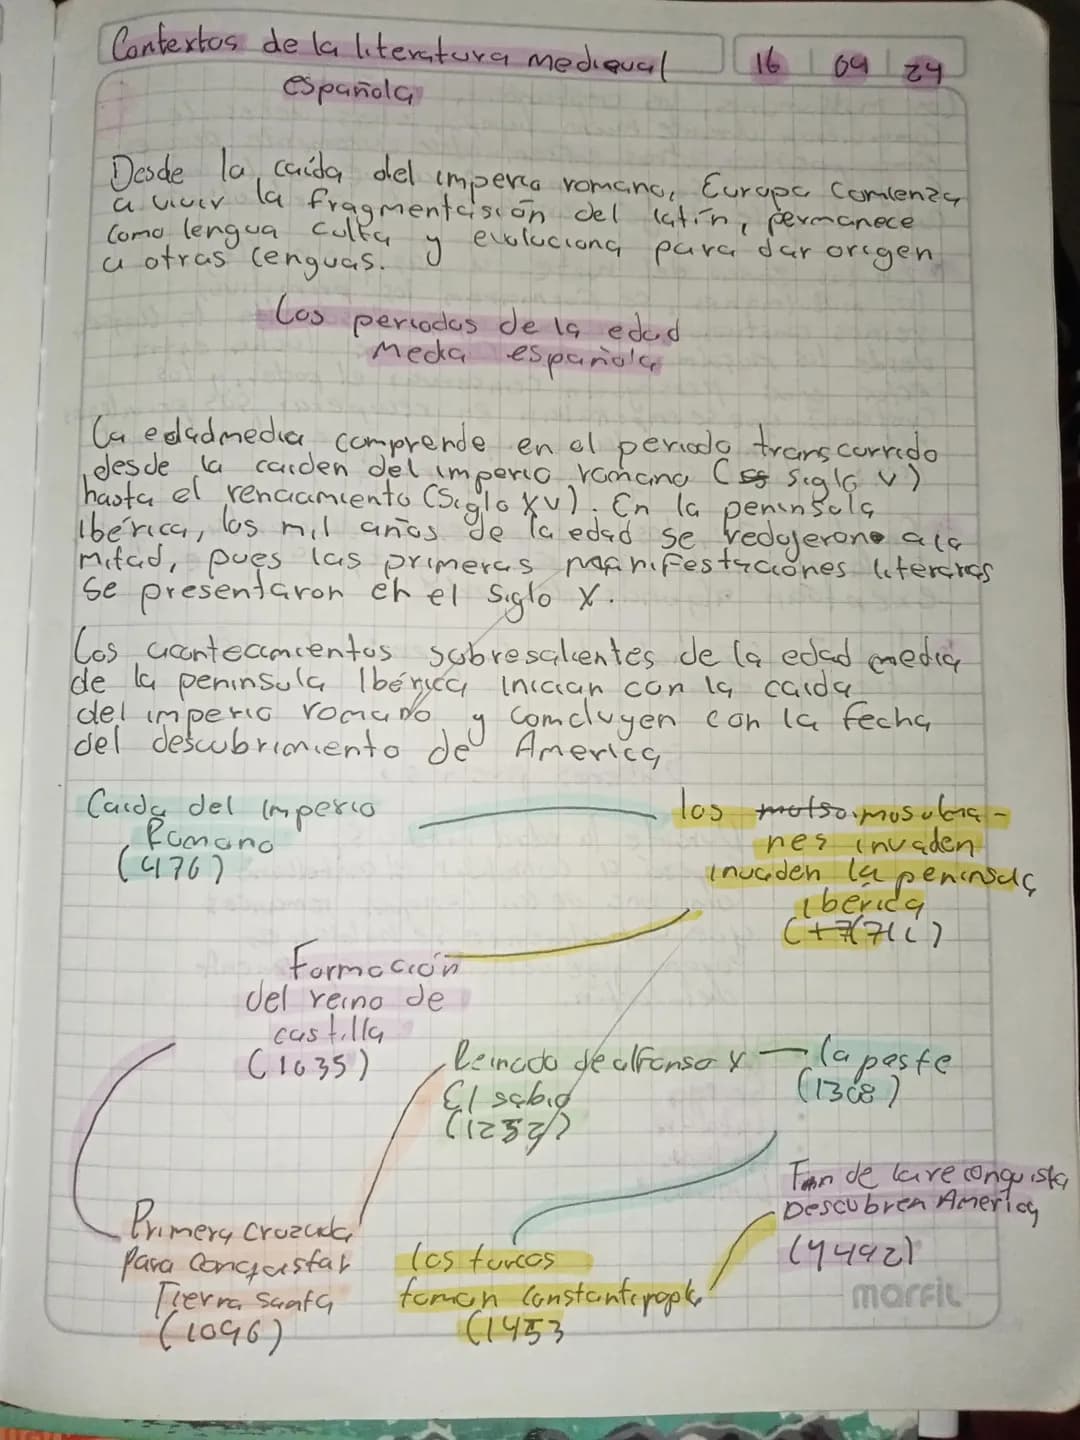 Contextos de la literatura medieval
española
16 04 24
Desde la caída del imperio romano, Europa comienza
a vivir la fragmentación del latín, permanece
como lengua culta y evoluciona para dar origen
a otras lenguas.
Los periodos de la edad
Media española
La edadmedia comprende en el periodo transcurrido
desde la caiden del imperio romano ( Siglo V)
hasta el renacimiento (Siglo XV). En la peninsula
Ibérica, los mil años de la edad se redujeron a la
mitad, pues las primeras manifestaciones literaras
se presentaron en el Siglo X.
Los acontecimientos sobresalientes de la edad media
de la peninsula Ibérica inician con la caida
del imperio romano y comcluyen con la fecha
del descubrimiento de America
Caida del Imperio
Romano
(476)
los musulma-
nes invaden
invaden la peninsula
iberica
(711)
Formación
del reino de
castilla
(1035)
Reinado de alfonso X
El sabio
(1252)
la peste
(1348)
Primera cruzada
para conquistar
Tierra santa
(1096)
los turcos
toman Constantinopla
(1453
Fin de la reconquista
Descubren America
(1492)
marfil